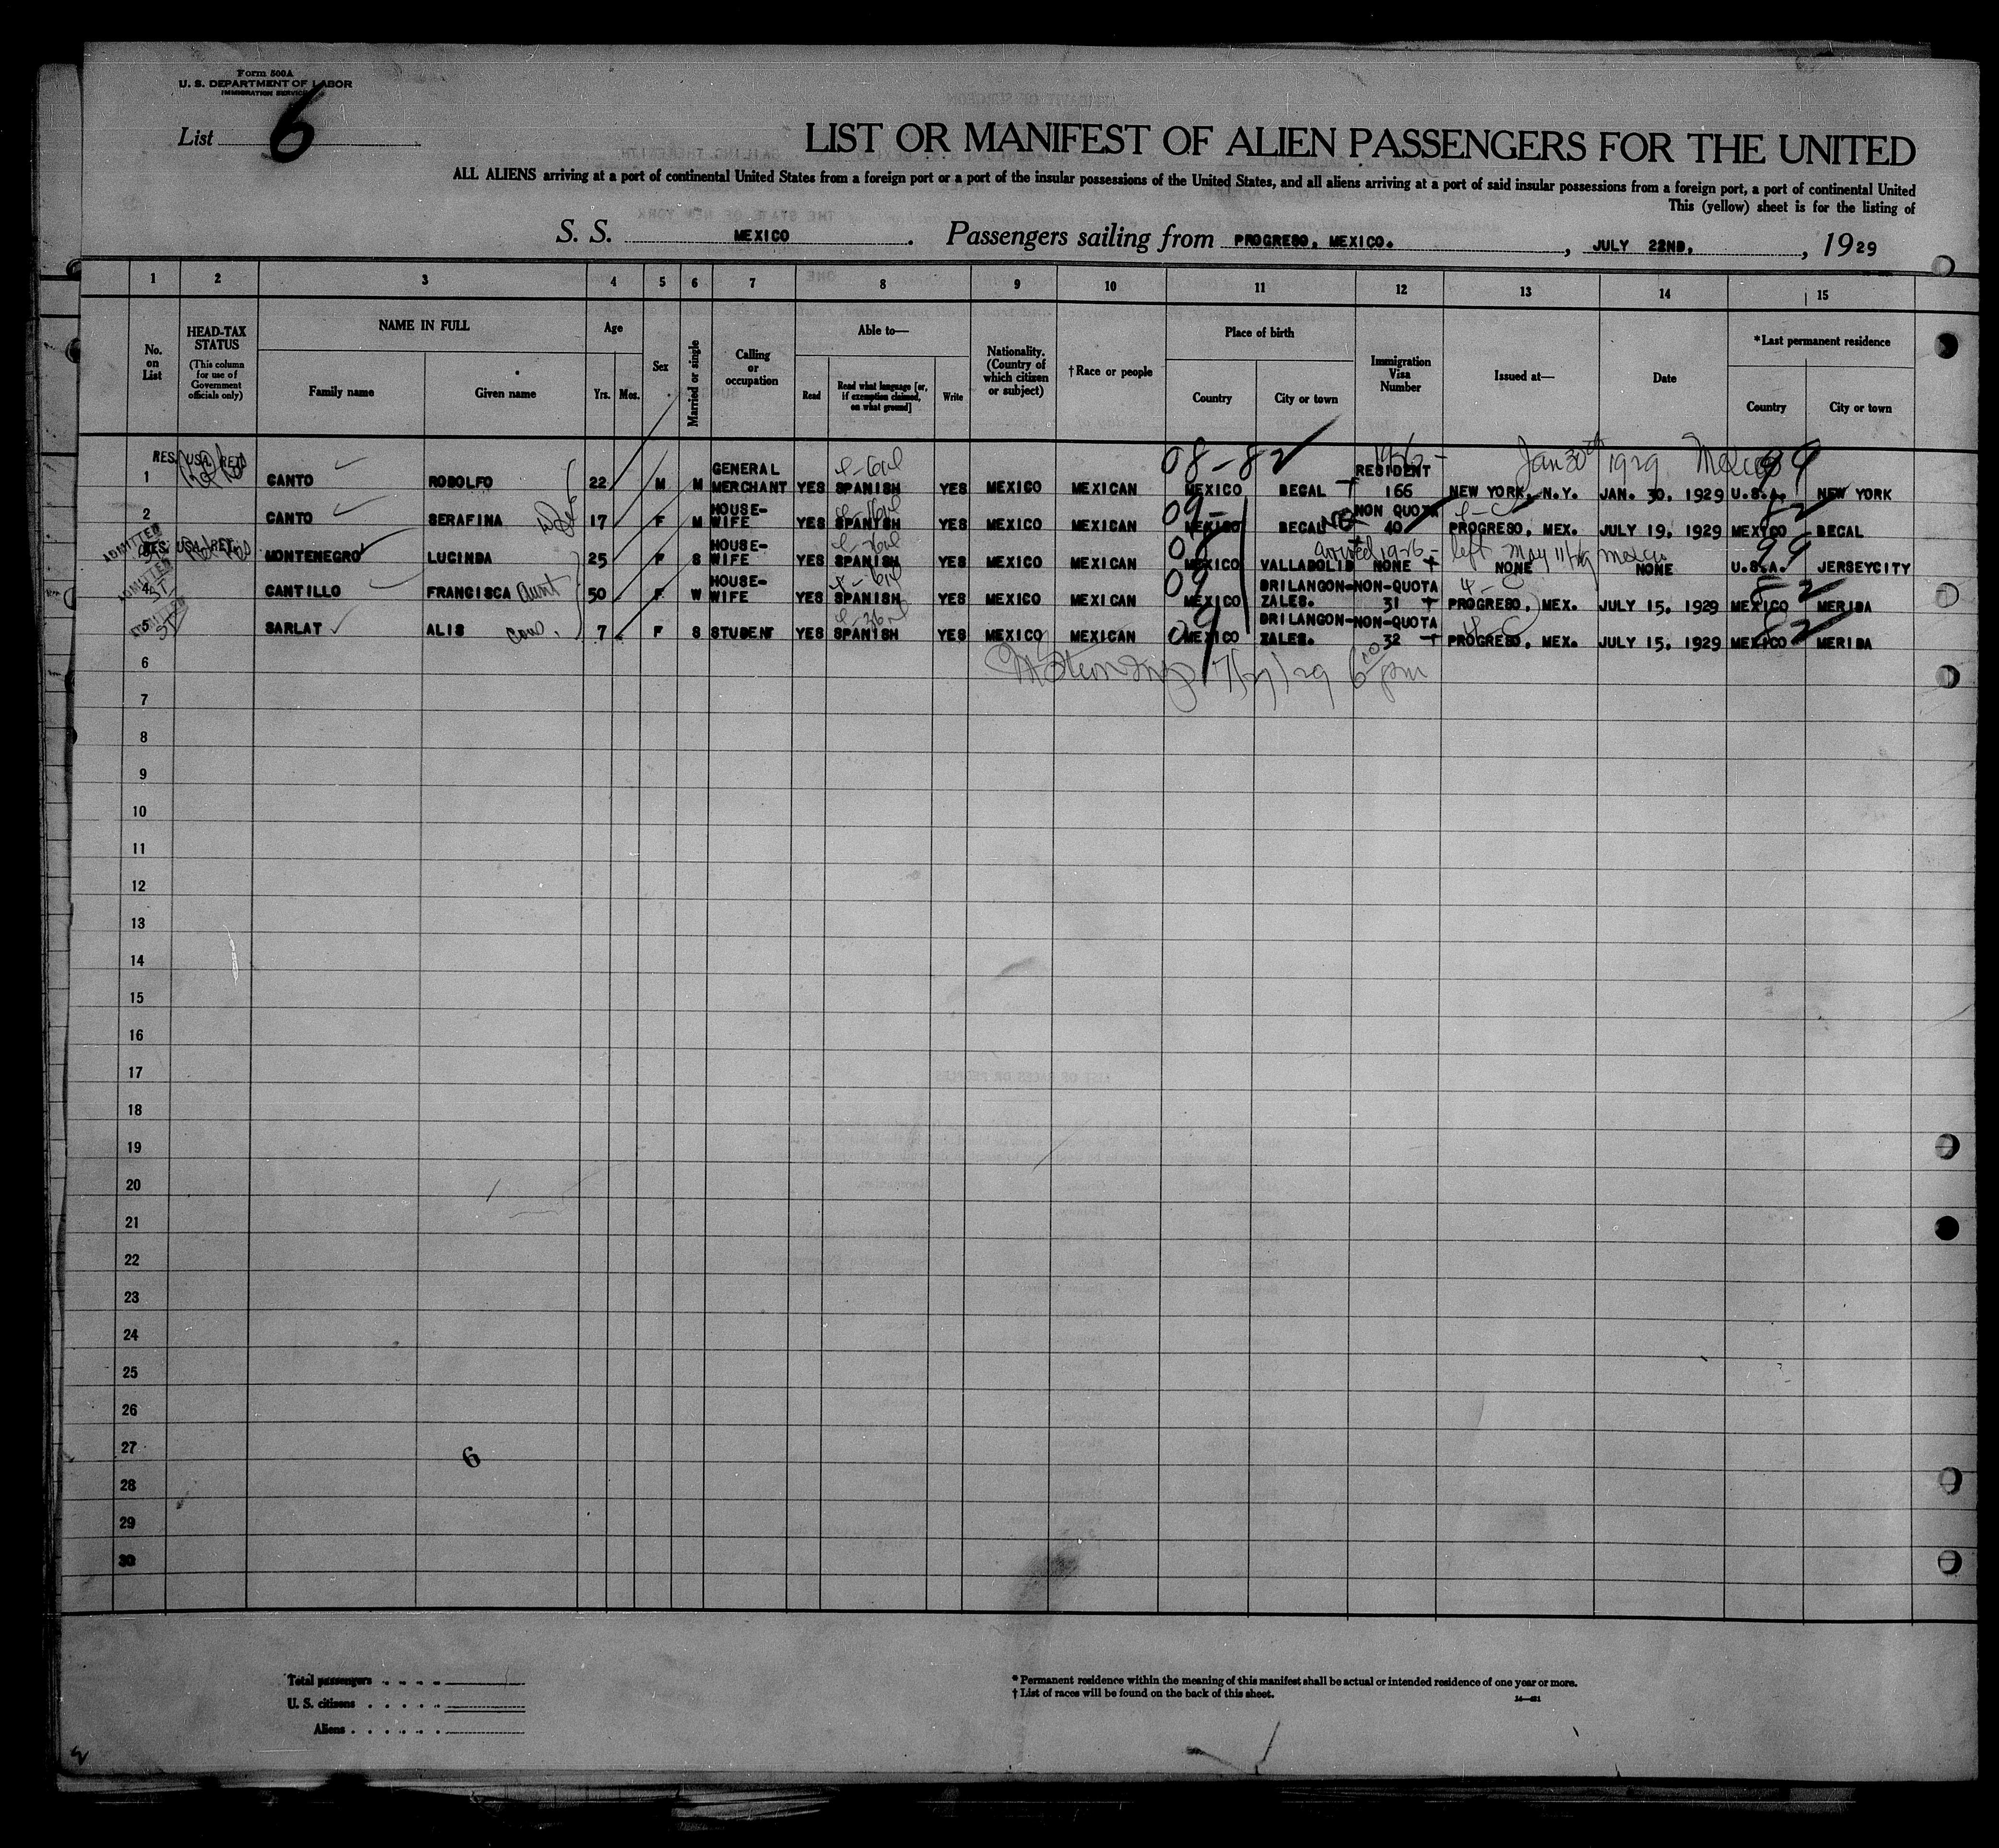 Form 500A
U. S. DEPARTMENT OF LABOR
IMMIGRATION SERVICE
List 6
LIST OR MANIFEST OF ALIEN PASSENGERS FOR THE UNITED
ALL ALIENS arriving at a port of continental United States from a foreign port or a port of the insular possessions of the United States, and all aliens arriving at a port of said insular possessions from a foreign port, a port of continental United
This (yellow) sheet is for the listing of
S. S. MEXICO. Passengers sailing from PROGRESO, MEXICO., JULY 22ND, , 1929
1 2 3 4 5 6 7 8 9 10 11 12 13 14 15
No. on List
HEAD-TAX STATUS (This column for use of Government officials only)
NAME IN FULL
Family name Given name
Age
Yrs. Mos.
Sex
Married or single
Calling or occupation
Able to—
Read Read what language [or, if exemption claimed, on what ground] Write
Nationality. (Country of which citizen or subject)
†Race or people
Place of birth
Country City or town
Immigration Visa Number
Issued at—
Date
*Last permanent residence
Country City or town
08-82 1926- Jan 30th 1929 Mexico 99
RES. USA. RET.
1 CANTO RODOLFO 22 M M GENERAL MERCHANT YES SPANISH YES MEXICO MEXICAN MEXICO BECAL RESIDENT 166 NEW YORK, N.Y. JAN. 30, 1929 U.S.A. NEW YORK
2 CANTO SERAFINA wife 17 F M HOUSE-WIFE YES SPANISH YES MEXICO MEXICAN MEXICO BECAL NON QUOTA 40 PROGRESO, MEX. JULY 19, 1929 MEXICO BECAL
arrived 1926- left May 11/29 mexico 99
ADMITTED
RES. USA. RET.
3 MONTENEGRO LUCINDA 25 F S HOUSE-WIFE YES SPANISH YES MEXICO MEXICAN MEXICO VALLADOLID NONE NONE NONE U.S.A. JERSEYCITY
ADMITTED
4 CANTILLO FRANCISCA aunt 50 F W HOUSE-WIFE YES SPANISH YES MEXICO MEXICAN MEXICO BRILANCON-ZALES. NON-QUOTA 31 PROGRESO, MEX. JULY 15, 1929 MEXICO MERIDA
ADMITTED
5 SARLAT ALIS cous. 7 F S STUDENT YES SPANISH YES MEXICO MEXICAN MEXICO BRILANCON-ZALES. NON-QUOTA 32 PROGRESO, MEX. JULY 15, 1929 MEXICO MERIDA
6
7
8
9
10
11
12
13
14
15
16
17
18
19
20
21
22
23
24
25
26
27
6
28
29
30
Total passengers
U. S. citizens
Aliens
* Permanent residence within the meaning of this manifest shall be actual or intended residence of one year or more.
† List of races will be found on the back of this sheet.
14—421